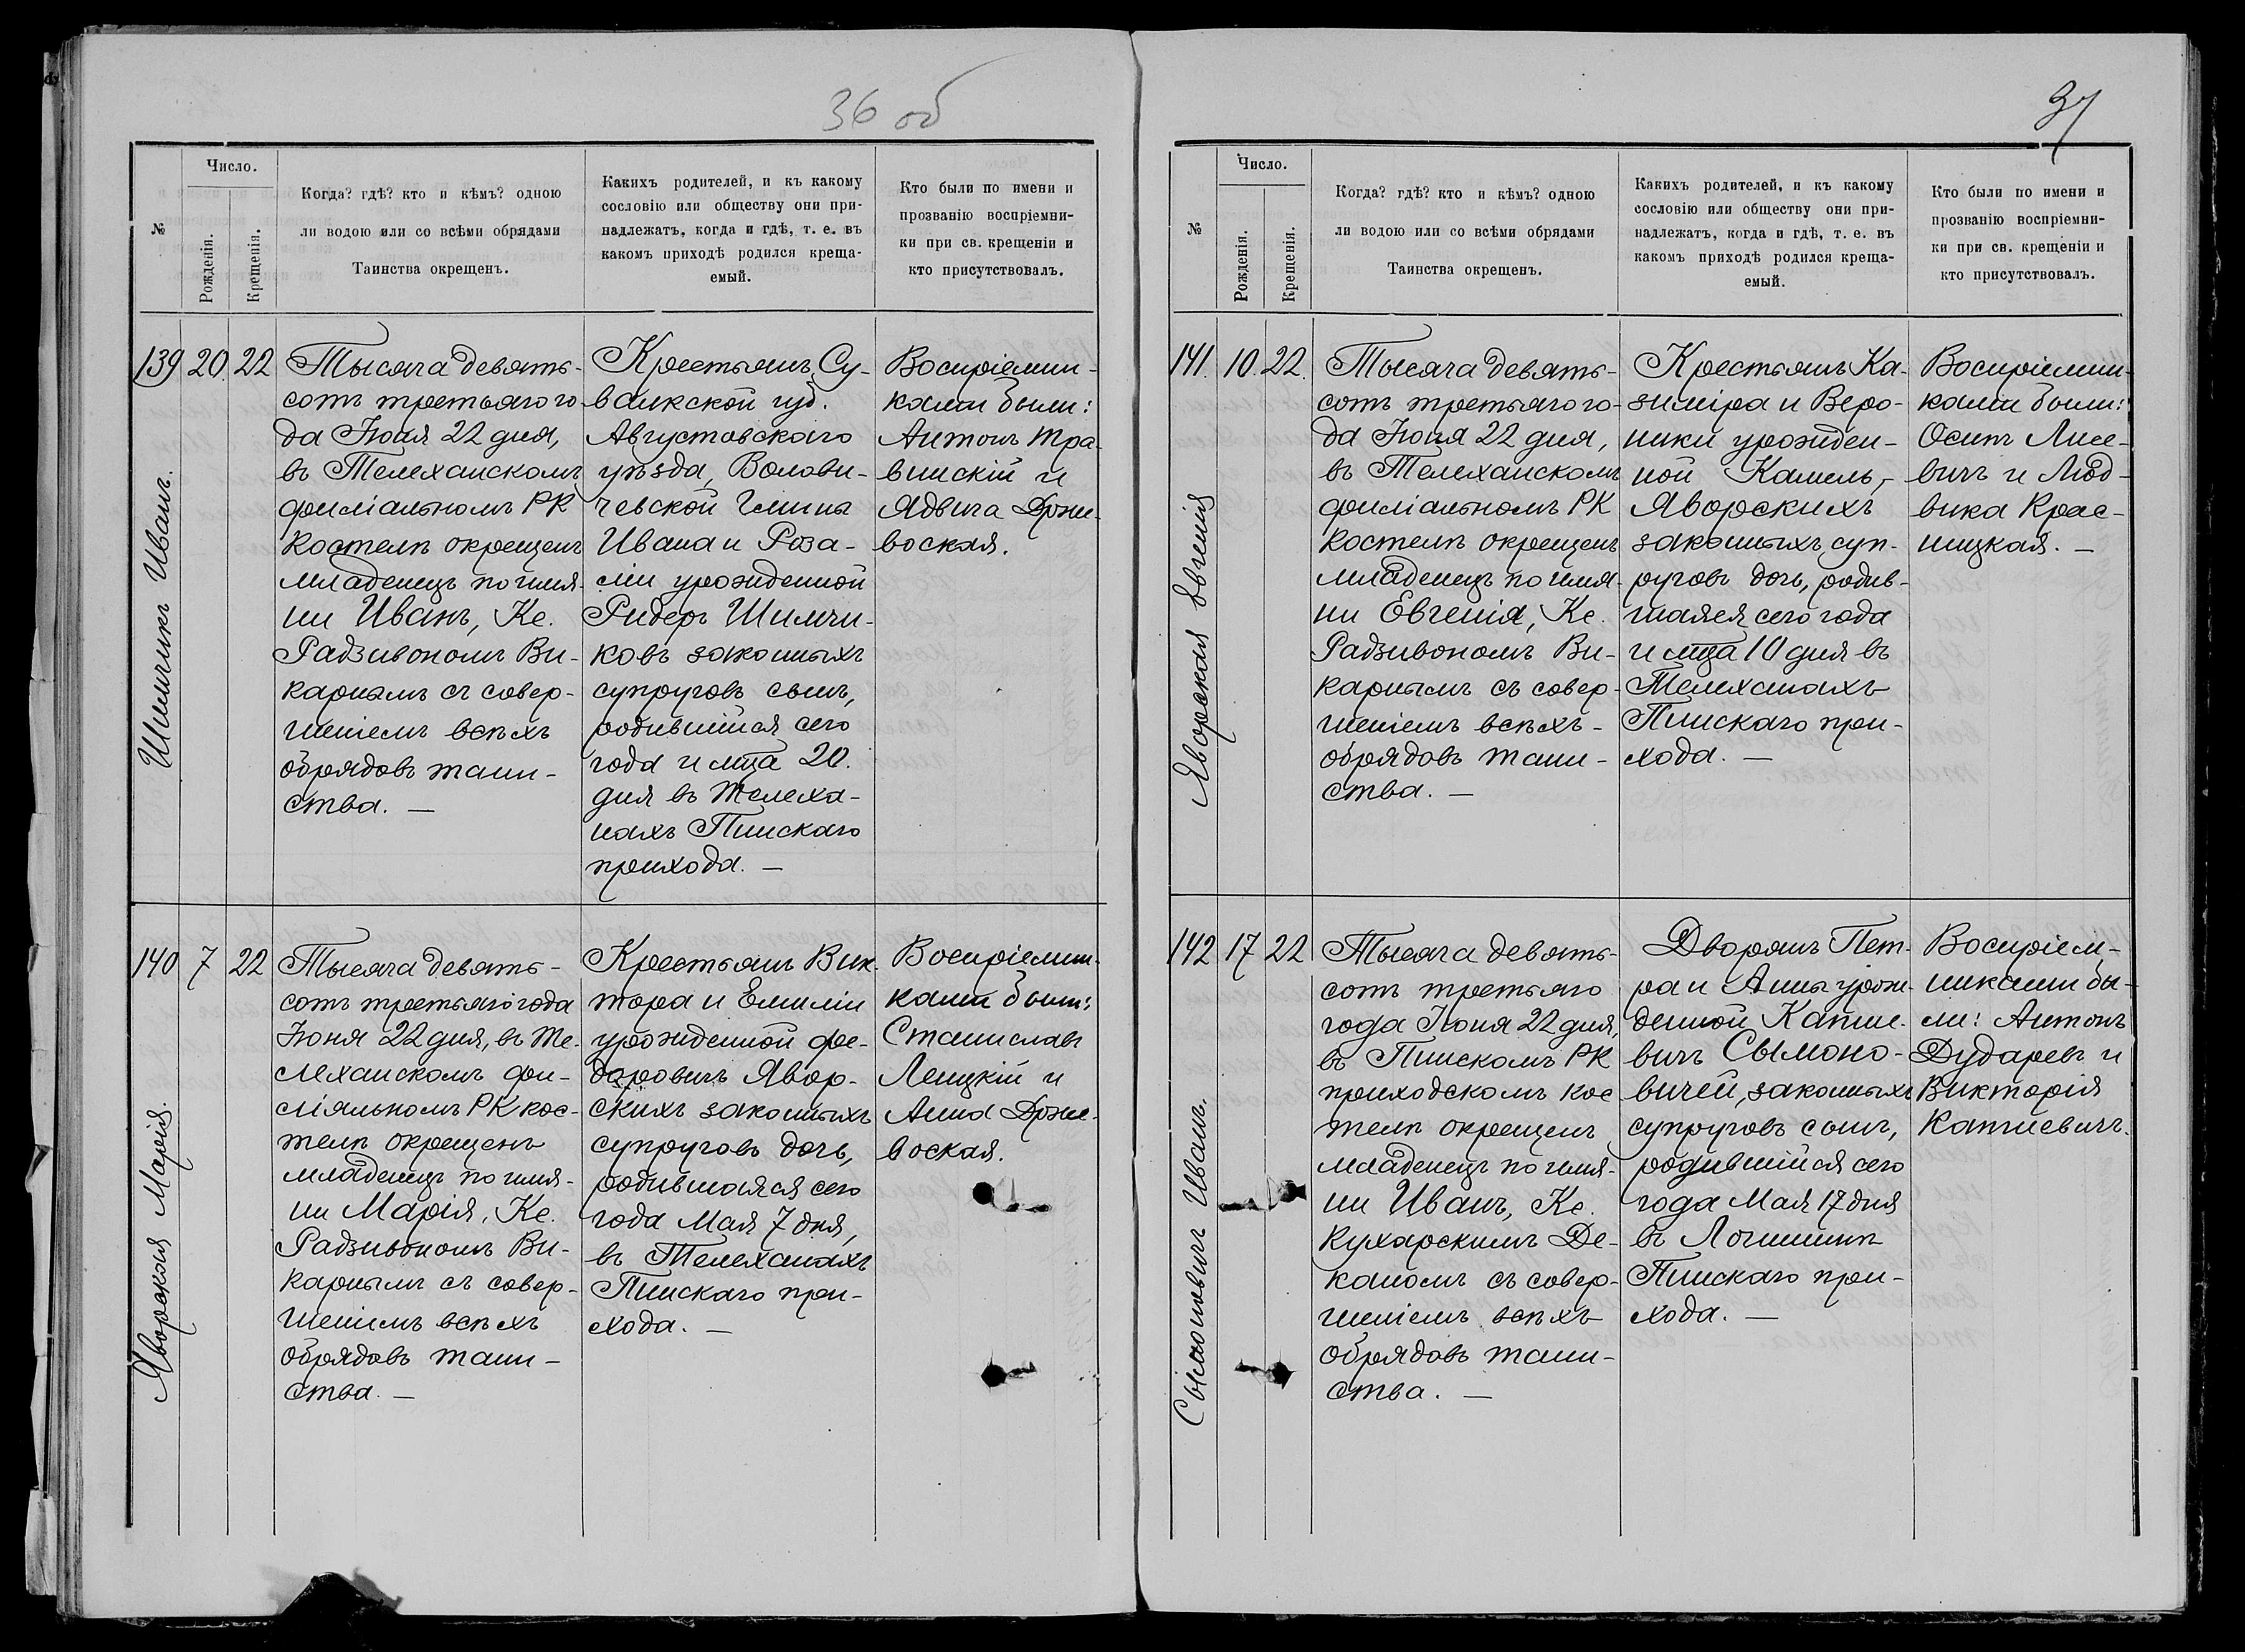 36 об
№
Число.
Рожденія.
Крещенія.
Когда? гдѣ? кто и кѣмъ? одною
ли водою или со всѣми обрядами
Таинства окрещенъ.
Какихъ родителей, и къ какому
сословію или обществу они при-
надлежатъ, когда и гдѣ, т. е. въ
какомъ приходѣ родился креща-
емый.
Кто были по имени и
прозванію воспріемни-
ки при св. крещеніи и
кто присутствовалъ.
139 20. 22
Шимчикъ Иванъ.
Тысяча девять-
сотъ третьяго го-
да Іюня 22 дня,
въ Телеханскомъ
филіальномъ РК
костелѣ окрещенъ
младенецъ по имя-
ни Иванъ, Кс.
Радзивономъ Ви-
карнымъ съ совер-
шеніемъ всѣхъ
обрядовъ таин-
ства. —
Крестьянъ Су-
валкской губ.
Августовскаго
уѣзда, Волови-
чевской гмины
Ивана и Роза-
ліи урожденной
Ридеръ Шимчи-
ковъ законныхъ
супруговъ сынъ,
родившійся сего
года и мца 20.
дня въ Телеха-
нахъ Пинскаго
прихода. —
Воспріемни-
ками были:
Антонъ Тра-
винскій и
Ядвига Држе-
воская.
140 7 22
Яворская Марія.
Тысяча девять-
сотъ третьяго года
Іюня 22 дня, въ Те-
леханскомъ фи-
ліяльномъ РК кос-
телѣ окрещенъ
младенецъ по имя-
ни Марія, Кс.
Радзивономъ Ви-
карнымъ съ совер-
шеніемъ всѣхъ
обрядовъ таин-
ства. —
Крестьянъ Вик-
тора и Емиліи
урожденной Фе-
даровичъ Явор-
скихъ законныхъ
супруговъ дочь,
родившаяся сего
года Мая 7 дня,
въ Телеханахъ
Пинскаго при-
хода. —
Воспріемни-
ками были:
Станиславъ
Ленцкій и
Анна Држе-
воская.
37
№
Число.
Рожденія.
Крещенія.
Когда? гдѣ? кто и кѣмъ? одною
ли водою или со всѣми обрядами
Таинства окрещенъ.
Какихъ родителей, и къ какому
сословію или обществу они при-
надлежатъ, когда и гдѣ, т. е. въ
какомъ приходѣ родился креща-
емый.
Кто были по имени и
прозванію воспріемни-
ки при св. крещеніи и
кто присутствовалъ.
141. 10. 22.
Яворская Евгенія
Тысяча девять-
сотъ третьяго го-
да Іюня 22 дня,
въ Телеханскомъ
филіальномъ РК
костелѣ окрещенъ
младенецъ по имя-
ни Евгенія, Кс.
Радзивономъ Ви-
карнымъ съ совер-
шеніемъ всѣхъ-
обрядовъ таин-
ства. —
Крестьянъ Ка-
зиміра и Веро-
ники урожден-
ной Камель,-
Яворскихъ
законныхъ суп-
руговъ дочь, родив-
шаяся сего года
и мца 10 дня въ
Телеханахъ
Пинскаго при-
хода. —
Воспріемни-
ками были:
Осипъ Лисе-
вичъ и Люд-
вика Крас-
ницкая. —
142 17 22
Сымоновичъ Иванъ.
Тысяча девять-
сотъ третьяго
года Іюня 22 дня,
въ Пинскомъ РК
приходскомъ кос
телѣ окрещенъ
младенецъ по имя-
ни Иванъ, Кс.
Кухарскимъ Де-
каномъ съ совер-
шеніемъ всѣхъ
обрядовъ таин-
ства. —
Дворянъ Пет-
ра и Анны урож-
денной Капше-
вичъ Сымоно-
вичей, законныхъ
супруговъ сынъ,
родившійся сего
года Мая 17 дня
въ Логишинѣ
Пинскаго при-
хода. —
Воспріем-
никами бы-
ли: Антонъ
Дударевъ и
Викторія
Капшевичъ.